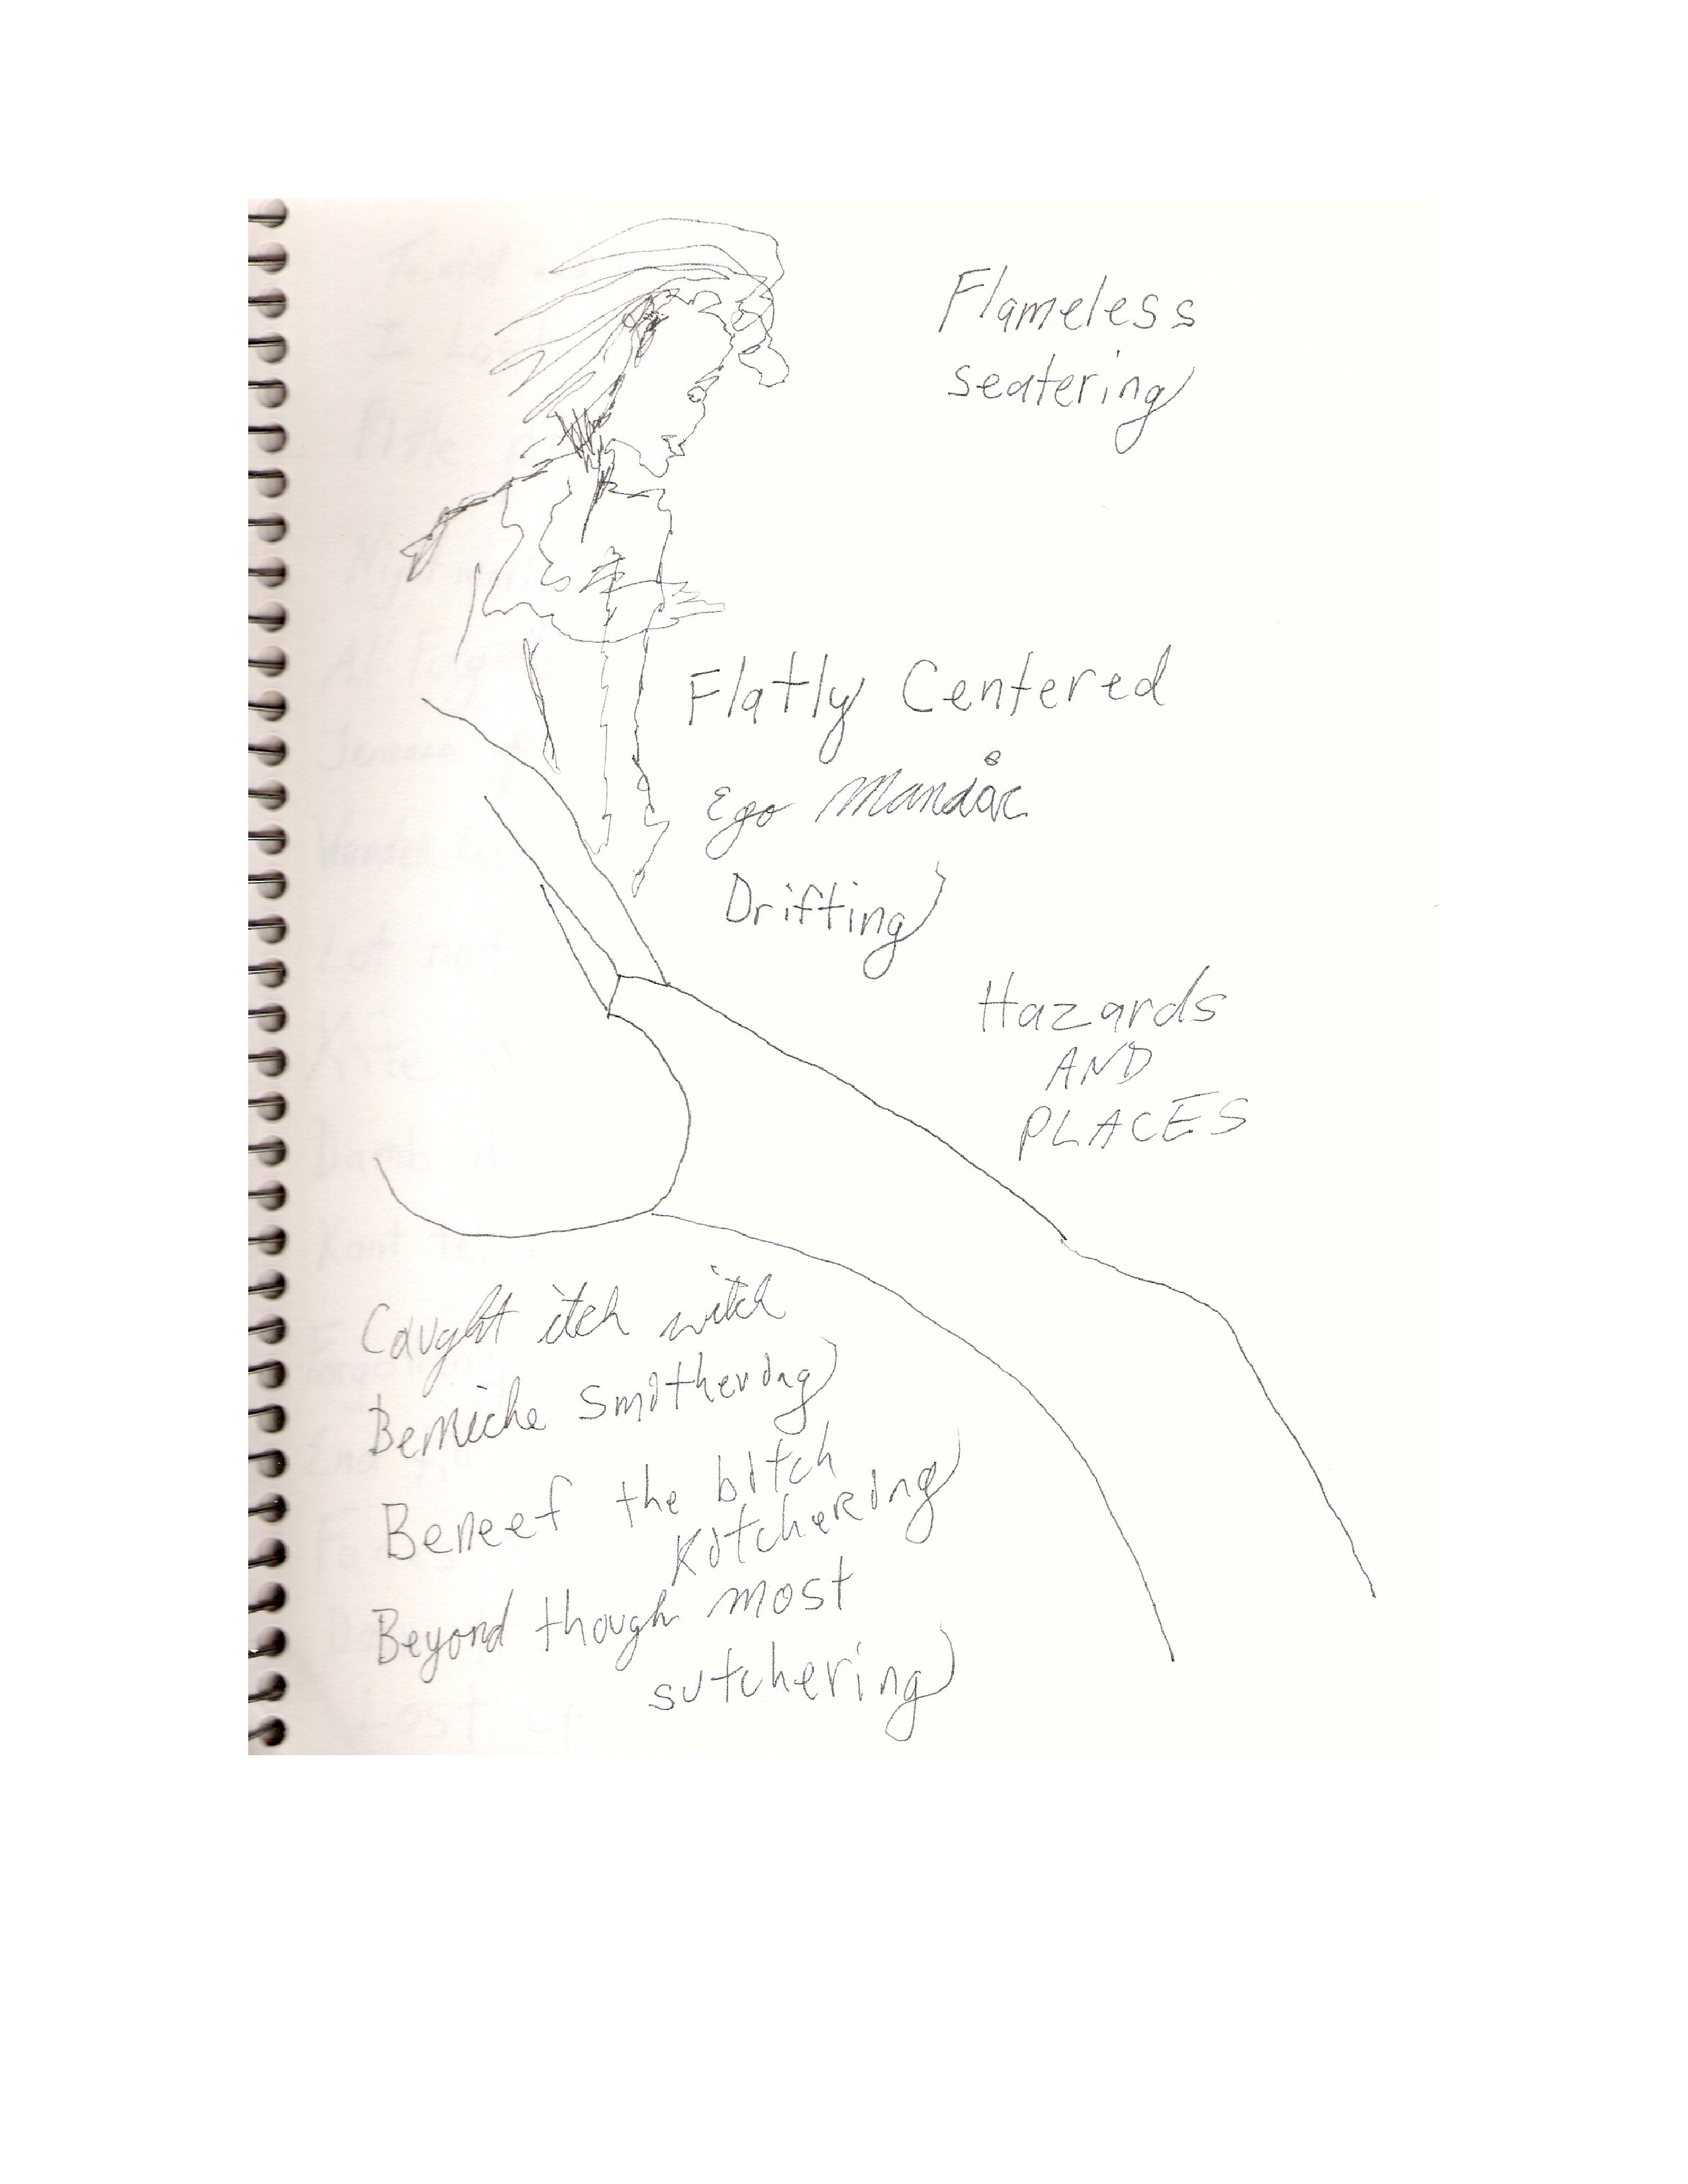 Flameless
seatering
Flatly Centered
Ego
Drifting
Hazards
AND
PLACES
Caught itch witch
Smitchering
Beneef the bitch
Kitchering
Beyond though most
sutchering